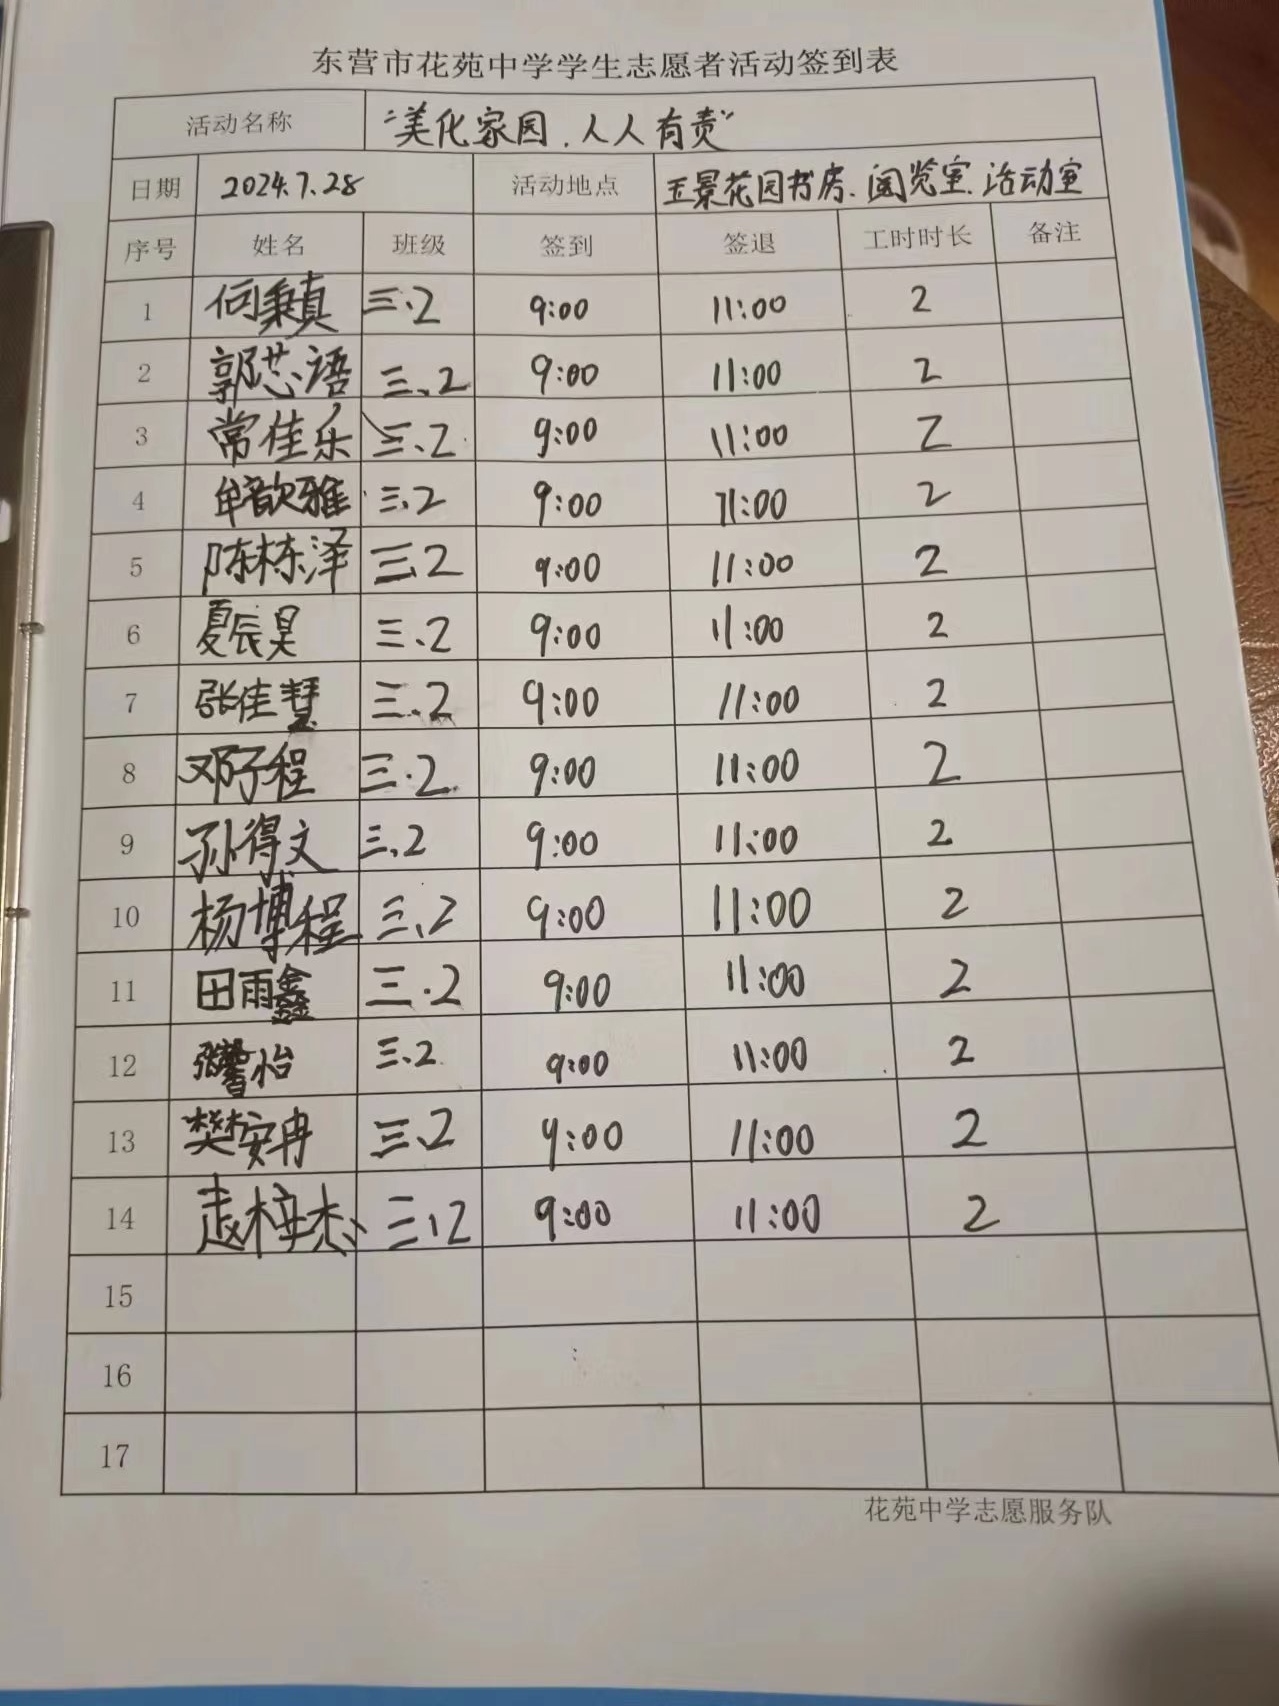 东营市花苑中学学生志愿者活动签到表
活动名称 “美化家园、人人有责”
日期 2024.7.28 活动地点 玉景花园书房、阅览室、活动室
序号 姓名 班级 签到 签退 工时时长 备注
1 何秉真 三.2 9:00 11:00 2
2 郭芯语 三.2 9:00 11:00 2
3 常佳乐 三.2 9:00 11:00 2
4 牟歆雅 三.2 9:00 11:00 2
5 陈栋泽 三.2 9:00 11:00 2
6 夏辰昊 三.2 9:00 11:00 2
7 张佳慧 三.2 9:00 11:00 2
8 邓子程 三.2 9:00 11:00 2
9 孙得文 三.2 9:00 11:00 2
10 杨博程 三.2 9:00 11:00 2
11 田雨鑫 三.2 9:00 11:00 2
12 张馨怡 三.2 9:00 11:00 2
13 樊安冉 三.2 9:00 11:00 2
14 赵梓杰 三.2 9:00 11:00 2
15
16
17
花苑中学志愿服务队